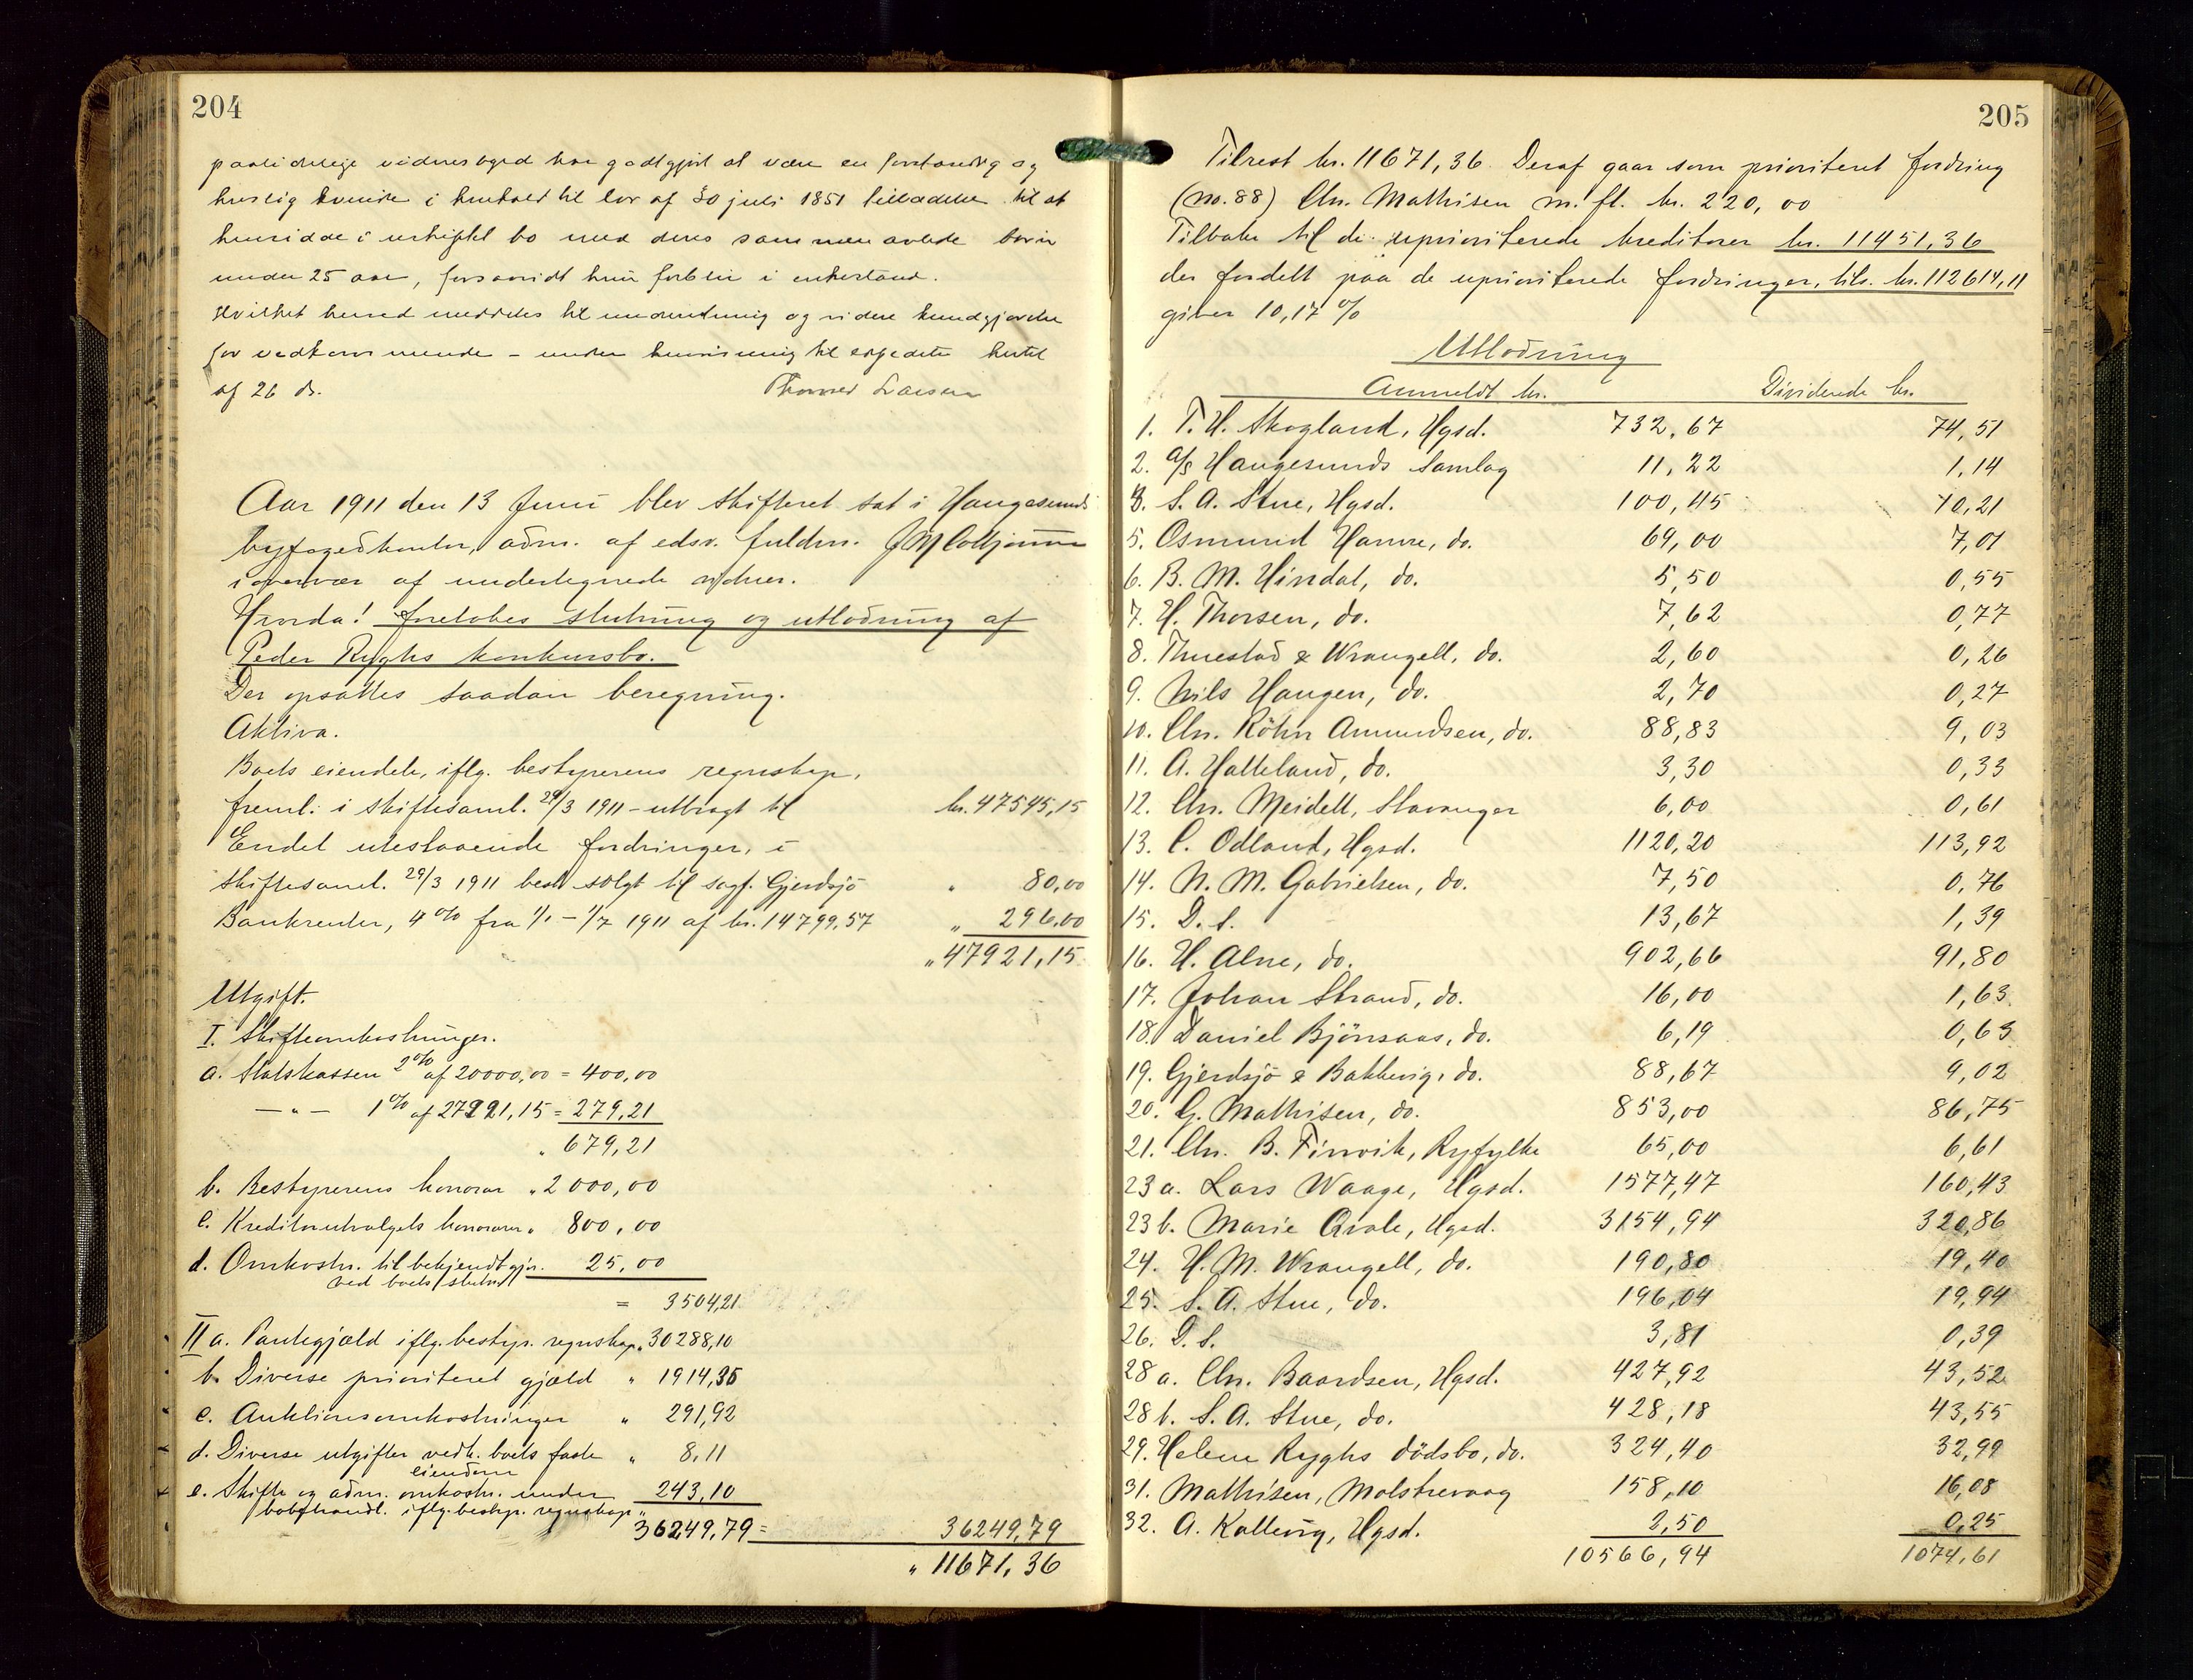 204
paalidelige vidnesbyrd har godtgjort at være en forstandig og
huslig kvinde i henhold til lov af 30 juli 1851 tilladelse til at
hensidde i uskiftet bo med deres sammen avlede børn
under 25 aar, forsaavidt hun forblir i enkestand.
Hvilket herved meddeles til underretning og videre kundgjørelse
for vedkommende – under henvisning til hertil
af 26 ds.
Thomas Larsen
Aar 1911 den 13 Juni blev skifteret sat i Haugesunds
byfogedkontor, adm. af edsv. fuldm.
i overvær af undertegnede vidner.
Hvorda! foretokes slutning og utlodning af
Peder Ryghs konkursbo.
Der opsattes saadan beregning.
Aktiva.
Boets eiendele, iflg. bestyrerens regnskap,
freml. i skiftesaml. 29/3 1911 – utbragt til kr. 47545,15
Endel utestaaende fordringer, i
skiftesaml. 29/3 1911 besl. solgt til sagf. Gjerdsjö " 80,00
Bankrenter, 4% fra 1/1 – 1/7 1911 af kr. 14799,57 " 296,00
" 47921,15
Utgift.
I. Skifteomkostninger.
a. Statskassen 2% af 20000,00 = 400,00
— " — 1% af 27921,15 = 279,21
" 679,21
b. Bestyrerens honorar " 2000,00
c. Kreditorutvalgets honorarer " 800,00
d. Omkostn. til bekjendtgjr. 25,00
ved boets slutn.
= 3504,21
II a. Pantegjæld iflg. bestyr. regnskap " 30288,10
b. Diverse prioriteret gjæld " 1914,35
c. Auktionsomkostninger " 291,92
d. Diverse utgifter vedk. boets faste " 8,11
eiendom
e. Skifte og adm. omkostn. under 243,10
bobehandl. iflg. bestyr. regnskap "
36249,79 = 36249,79
" 11671,36
205
Tilrest kr. 11671,36. Deraf gaar som prioriteret fordring
(no. 88) Chr. Mathisen m. fl. kr. 220,00
Tilbake til de uprioriterede kreditorer kr. 11451,36
der fordelt paa de uprioriterede fordringer, tils. kr. 112614,11
giver 10,17%
Utlodning
Anmeldt kr. Dividende kr.
1. T. H. Skogland, Hgsd. 732,67 74,51
2. A/S Haugesunds Samlag 11,22 1,14
3. S. A. Stue, Hgsd. 100,45 10,21
5. Osmund Hamre, do. 69,00 7,01
6. B. M. Hindal, do. 5,50 0,55
7. H. Thorsen, do. 7,62 0,77
8. Thuestad & Wrangell, do. 2,60 0,26
9. Nils Haugen, do. 2,70 0,27
10. Chr. Röhn Amundsen, do. 88,83 9,03
11. A. Halleland, do. 3,30 0,33
12. Chr. Meidell, Stavanger 6,00 0,61
13. C. Odland, Hgsd. 1120,20 113,92
14. N. M. Gabrielsen, do. 7,50 0,76
15. D. s. 13,67 1,39
16. H. Alne, do. 902,66 91,80
17. Johan Strand, do. 16,00 1,63
18. Daniel Bjönsaas, do. 6,19 0,63
19. Gjerdsjö & Bakkevig, do. 88,67 9,02
20. G. Mathisen, do. 853,00 86,75
21. Chr. B. Finvik, Ryfylke 65,00 6,61
23 a. Lars Waage, Hgsd. 1577,47 160,43
23 b. Marie Qvale, Hgsd. 3154,94 320,86
24. H. M. Wrangell, do. 190,80 19,40
25. S. A. Stue, do. 196,04 19,94
26. D. s. 3,81 0,39
28 a. Chr. Baardsen, Hgsd. 427,92 43,52
28 b. S. A. Stue, do. 428,18 43,55
29. Helene Ryghs dödsbo, do. 324,40 32,99
31. Mathisen, Molstrevaag 158,10 16,08
32. A. Kallevig, Hgsd. 2,50 0,25
10566,94 1074,61